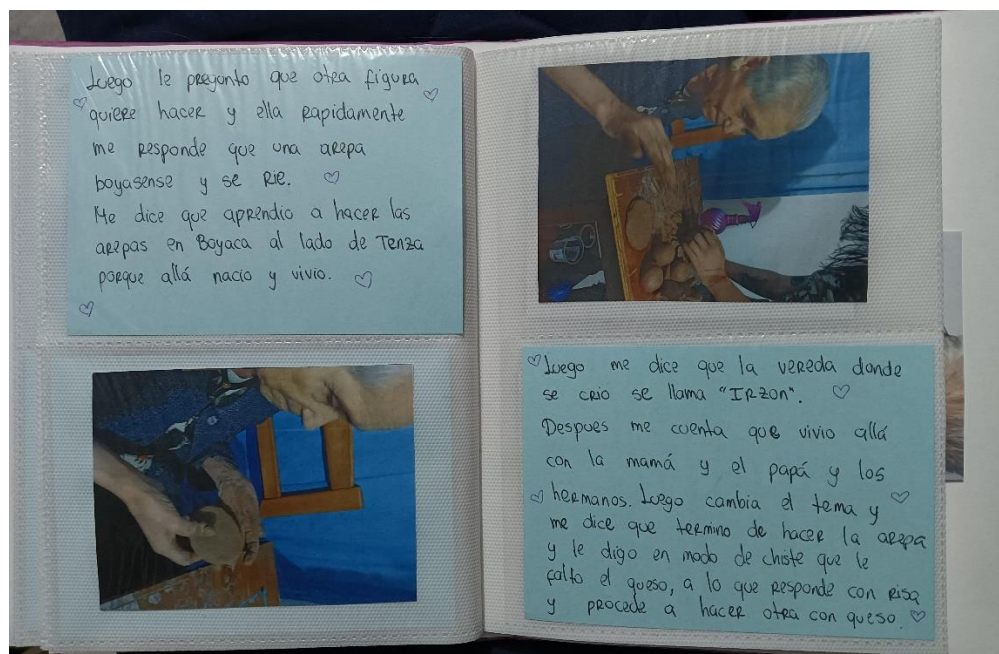 Luego le pregunto que otra figura
quiere hacer y ella rapidamente
me responde que una arepa
boyasense y se rie.
Me dice que aprendio a hacer las
arepas en Boyaca al lado de Tenza
porque allá nacio y vivio.
Luego me dice que la vereda donde
se crio se llama "IRzon".
Despues me cuenta que vivio allá
con la mamá y el papá y los
hermanos. Luego cambia el tema y
me dice que termino de hacer la arepa
y le digo en modo de chiste que le
falto el queso, a lo que responde con risa
y procede a hacer otra con queso.